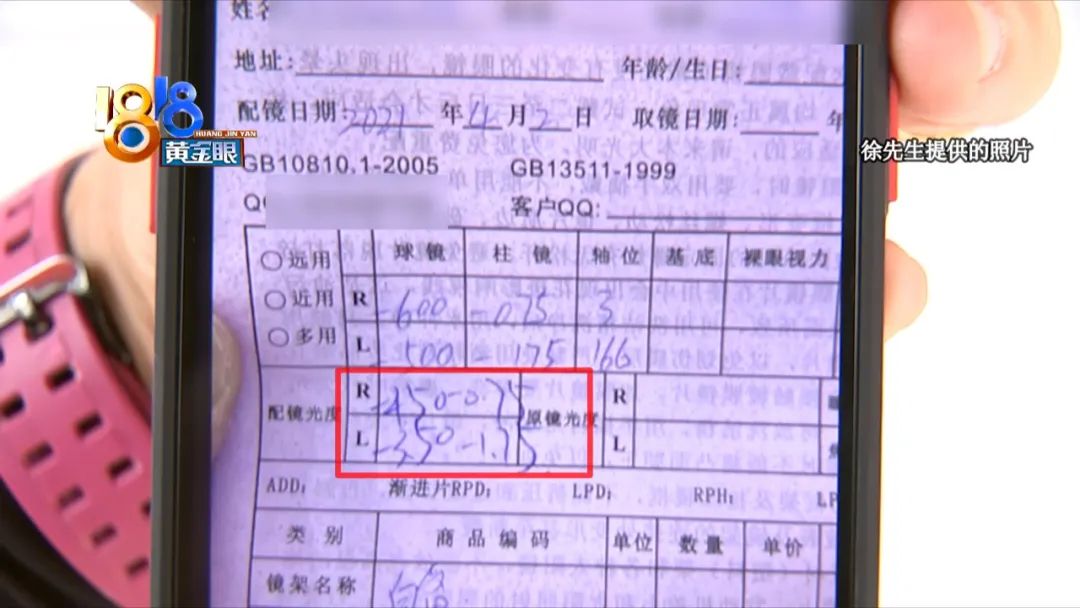 姓名
地址: 年龄/生日:
1818 HUANG JIN YAN 黄金眼
配镜日期: 2021 年 4 月 2 日 取镜日期: 年
徐先生提供的照片
GB10810.1-2005 GB13511-1999
客户QQ:
球镜 柱镜 轴位 基底 裸眼视力
○远用
○近用 R -600 0.75 3
○多用 L -500 - 175 166
配镜光度 R -450 -0.75 原镜光度 R
L -350 -1.75 L
ADD: 渐进片RPD: LPD: RPH: LP
类别 商品编码 单位 数量 单价
镜架名称